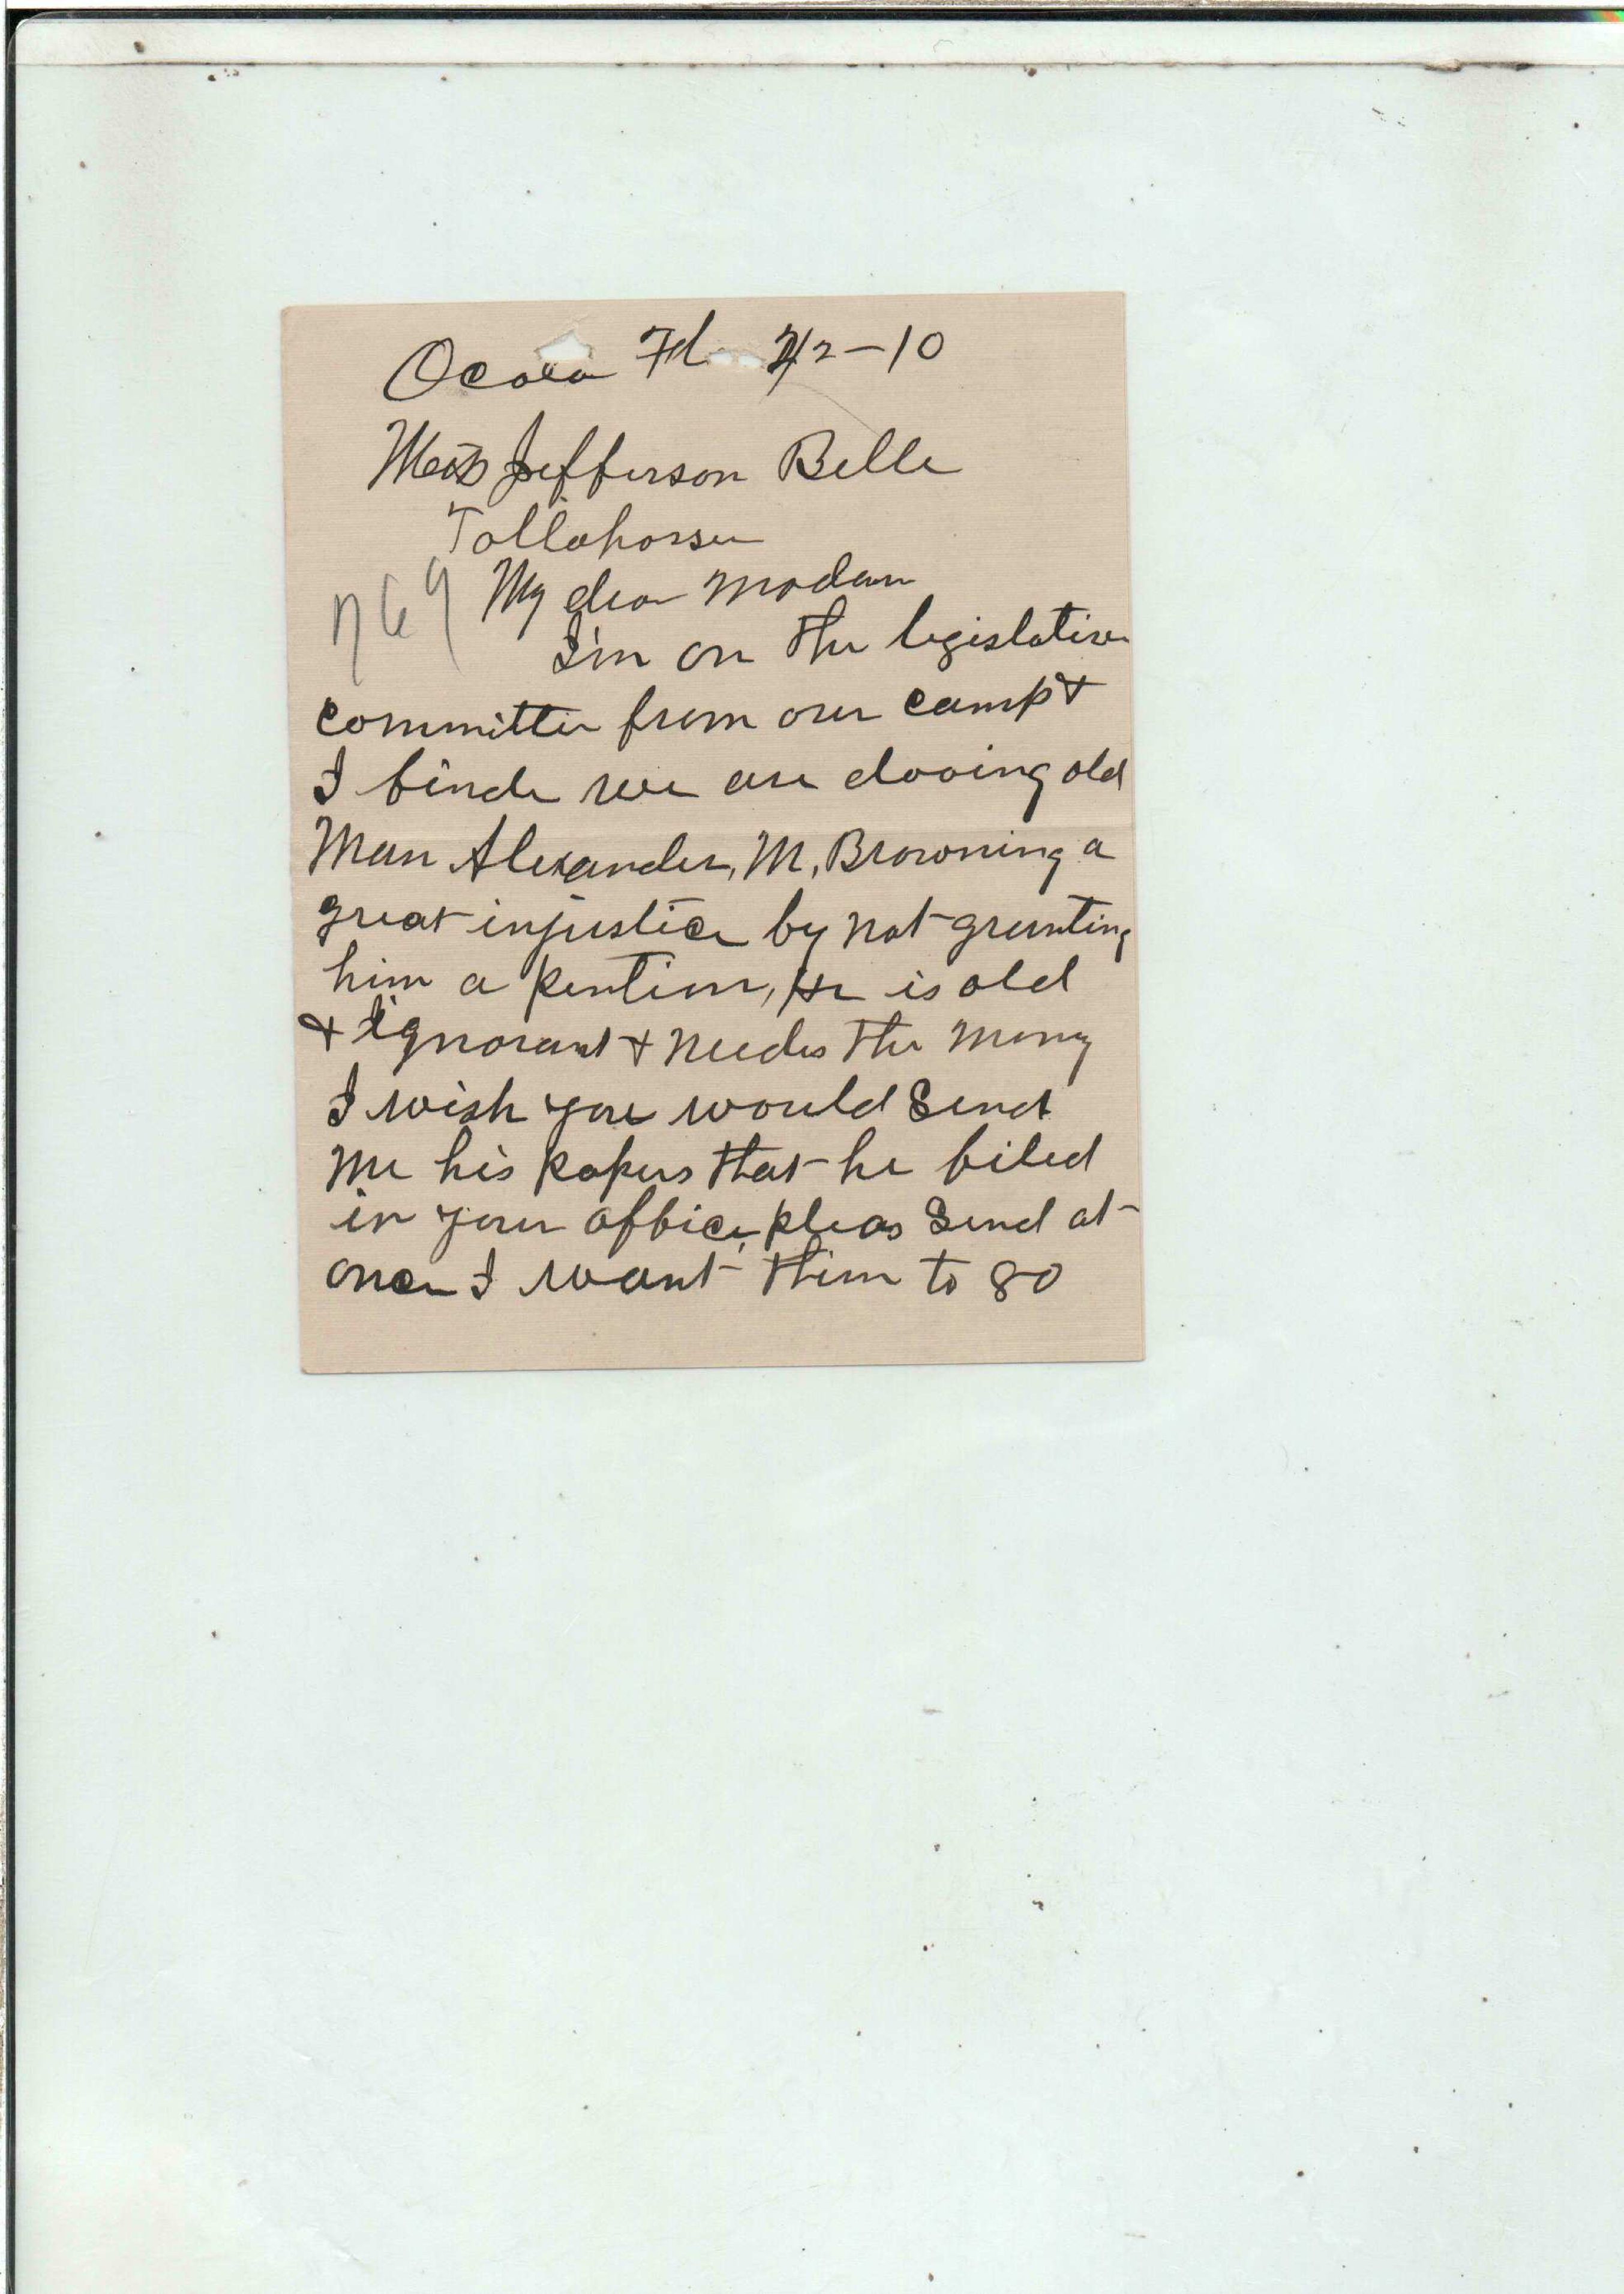 Ocala Fl 2/2-10
Miss Jefferson Belle
Tallahassee
769 My dear Madam
I'm on the legislative
committee from our camp &
I finde we are dooing old
Man Alexander, M, Browning a
great injustice by not granting
him a pention, He is old
& ignorant & needes the mony
I wish you would send
me his papers that he filed
in your office, pleas send at
once I want them to go